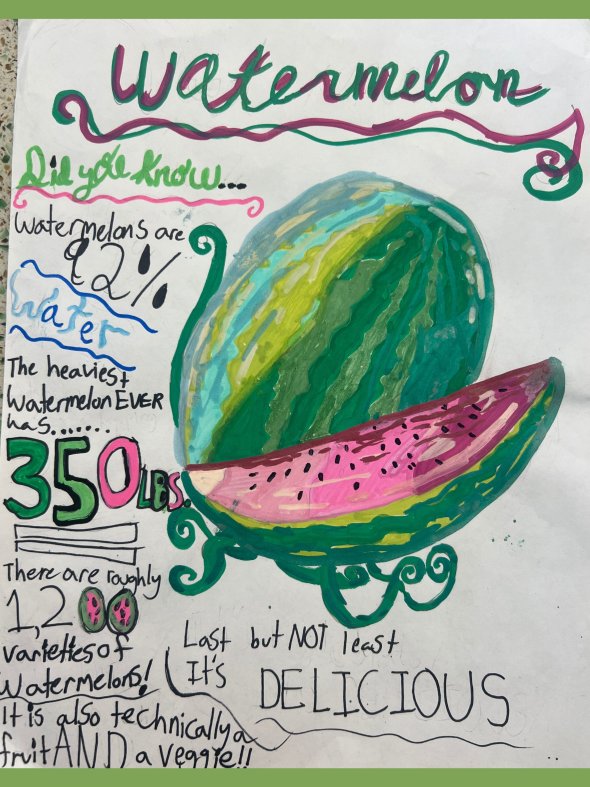 Watermelon
Did you know...
Watermelons are
92%
Water
The heaviest
Watermelon EVER
was.......
350LBS.
There are roughly
1,200
varieties of
Watermelons!
It is also technically a
fruit AND a veggie!!
Last but NOT least
It's
DELICIOUS